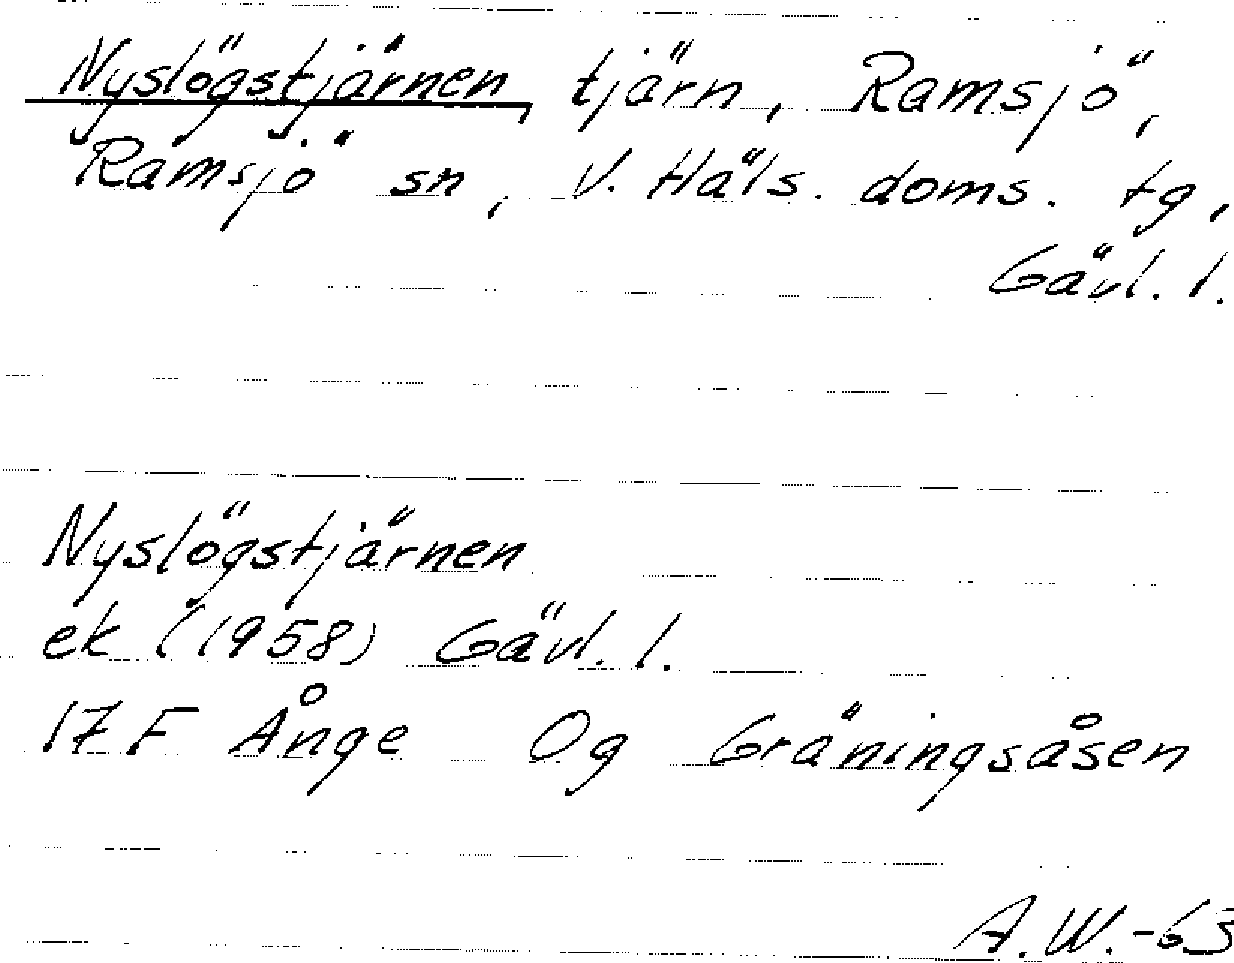 Nyslögstjärnen, tjärn, Ramsjö,
Ramsjö sn, V. Häls. doms. tg,
Gävl. l.
Nyslögstjärnen
ek (1958) Gävl. l.
17 F Ånge Og Gräningsåsen
A.W.-63